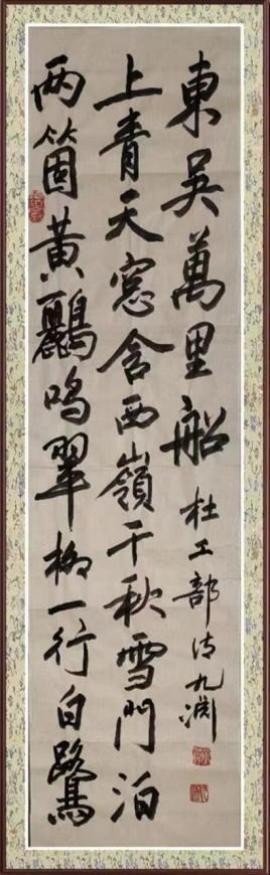 两箇黄鸝鳴翠柳一行白鷺
上青天窓含西嶺千秋雪門泊
東吳萬里船
杜工部诗九渊